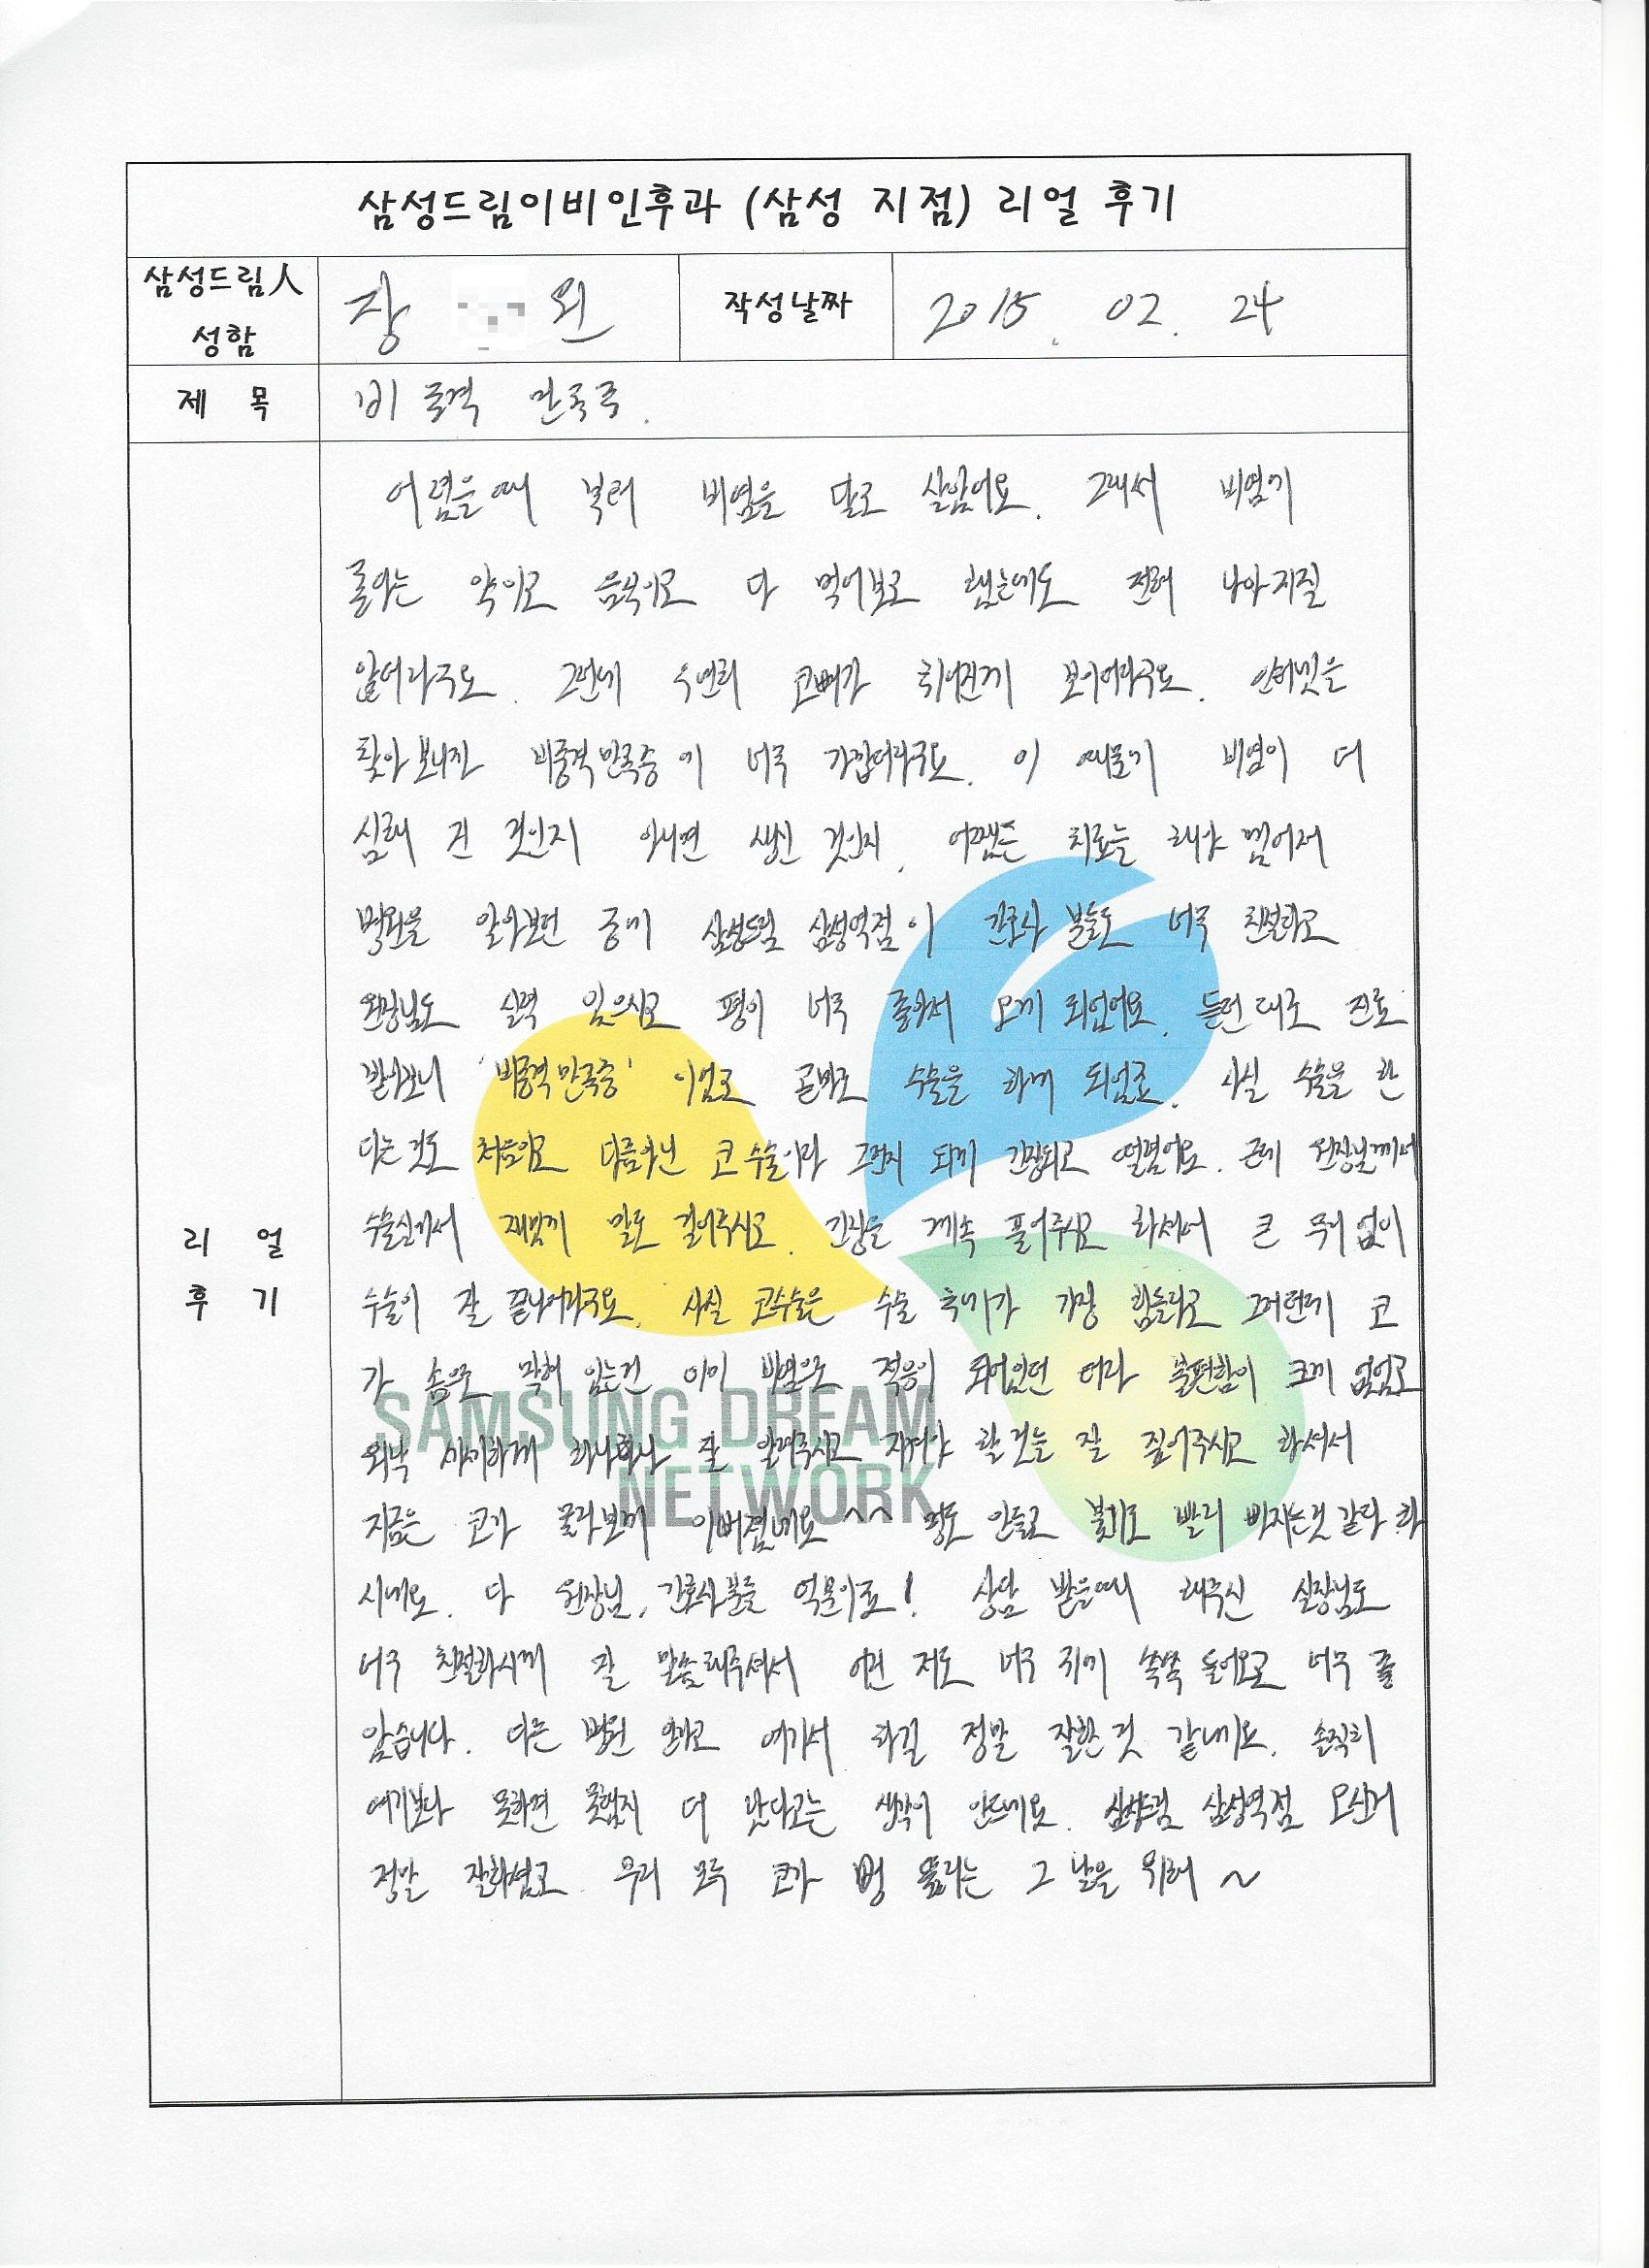 삼성드림이비인후과 (삼성 지점) 리얼 후기
삼성드림人 성함
장 원
작성날짜
2015. 02. 24
제 목
비중격 만곡증.
어렸을때 부터 비염을 달고 살았어요. 그래서 비염에
좋다는 약이고 음식이고 다 먹어보고 했는데도 전혀 나아지질
않더라구요. 그런데 우연히 코뼈가 휘어진게 보이더라구요. 인터넷을
찾아보니깐 비중격만곡증이 너무 가깝더라구요. 이 때문에 비염이 더
심해 진 것인지 아니면 생긴 것인지. 어쨌든 치료는 해야 겠어서
병원을 알아보던 중에 삼성드림 삼성역점이 간호사 분들도 너무 친절하고
원장님도 실력 있으시고 평이 너무 좋아서 오게 되었어요. 듣던대로 진료
받아보니 '비중격만곡증' 이었고 곧바로 수술을 하게 되었죠. 사실 수술을 한
다는것도 처음이고 다름아닌 코 수술이라 그런지 되게 긴장되고 떨렸어요. 근데 원장님께서
수술실에서 재밌게 말도 걸어주시고. 긴장을 계속 풀어주시고 하셔서 큰 무리 없이
수술이 잘 끝나더라구요. 사실 코수술은 수술 후에가 가장 힘들다고 그러던데 코
가 솜으로 막혀 있는건 이미 비염으로 적응이 되어있던 터라 불편함이 크게 없었고
워낙 세세하게 하나하나 잘 알려주시고 지켜야 할것들 잘 짚어주시고 하셔서
지금은 코가 몰라보게 이뻐졌네요^^ 멍도 안들고 붓기도 빨리 빠지는것 같다 하
시네요. 다 원장님, 간호사분들 덕분이죠! 상담 받을때 해주신 실장님도
너무 친절하시게 잘 말씀해주셔서 어린 저도 너무 귀에 쏙쏙 들어오고 너무 좋
았습니다. 다른 병원 안가고 여기서 하길 정말 잘한것 같네요. 솔직히
여기보다 못하면 못했지 더 낫다고는 생각이 안드네요. 삼성드림 삼성역점 오신거
정말 잘하셨고 우리 모두 코가 뻥 뚫리는 그 날을 위해 ~
리 얼
후 기
SAMSUNG DREAM
NETWORK